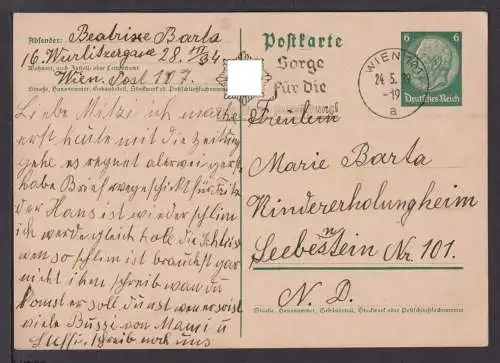 Absender: Beatrixe Barta
16. Wurlitzergasse 28. III/34.
Wohnort, auch Zustell- oder Leitpostamt
Wien. Post 117.
Straße, Hausnummer, Gebäudeteil, Stockwerk od. Postschließfachnummer
Liebe Mitzi ich mache
erst heute mit die Zeitung
gehe es regnet alerwei gers
habe Brief weg schickt für Fritz
der Hans ist wieder schlim
ich werde gleich holl die
wen so schlim ist brauchst gar
nicht ihm schreib wan du
komst er soll du ast wen er so ist
viele Bussi von Mami u
schreib noch uns
Postkarte
Sorge
für die
WIEN
24. 5. 39
-19
a
6 6
Deutsches Reich
Freulein
Marie Barta
Kindererholungheim
Seebenstein Nr. 101.
N. D.
Straße, Hausnummer, Gebäudeteil, Stockwerk oder Postschließfachnummer